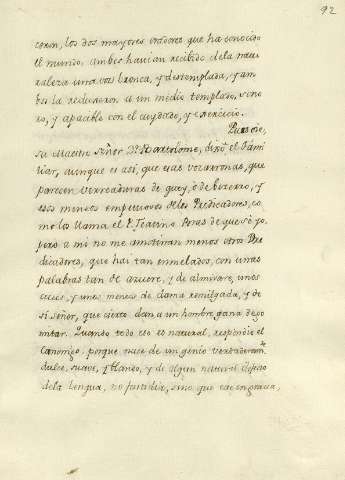 92
ceron, los dos mayores oradores que ha conocido
el mundo. ambos havian recibido dela natu
raleza una voz bronca, y destemplada, y am
bos la reduxeron a un medio templado, sono
ro, y apacible con el cuydado, y exercicio.
Pues
su Maestro señor Dn. Bartolome, dixo el Fami
liar, aunque es asi, que esas vozarronas, que
parecen berreaduras de guey, ò de becerro, y
esos meneos de los Predicadores, co
mo los llama el P. Teatino Poras de que sé yo,
pero a mi no me amohinan menos otros Pre
dicadores, que hai tan enmelados, con unas
palabras tan de azucar, y de almivare, unos
cecees, y unos meneos de dama remilgada, y de
si señor, que cierto dan a un hombre gana de go
mitar. Quando todo eso es natural, respondio el
Canonigo, porque nace de un genio verdaderam.te
dulce, suave, y blando, y de algun natural defecto
dela lengua, no fastidia, sino que cae en gracia,